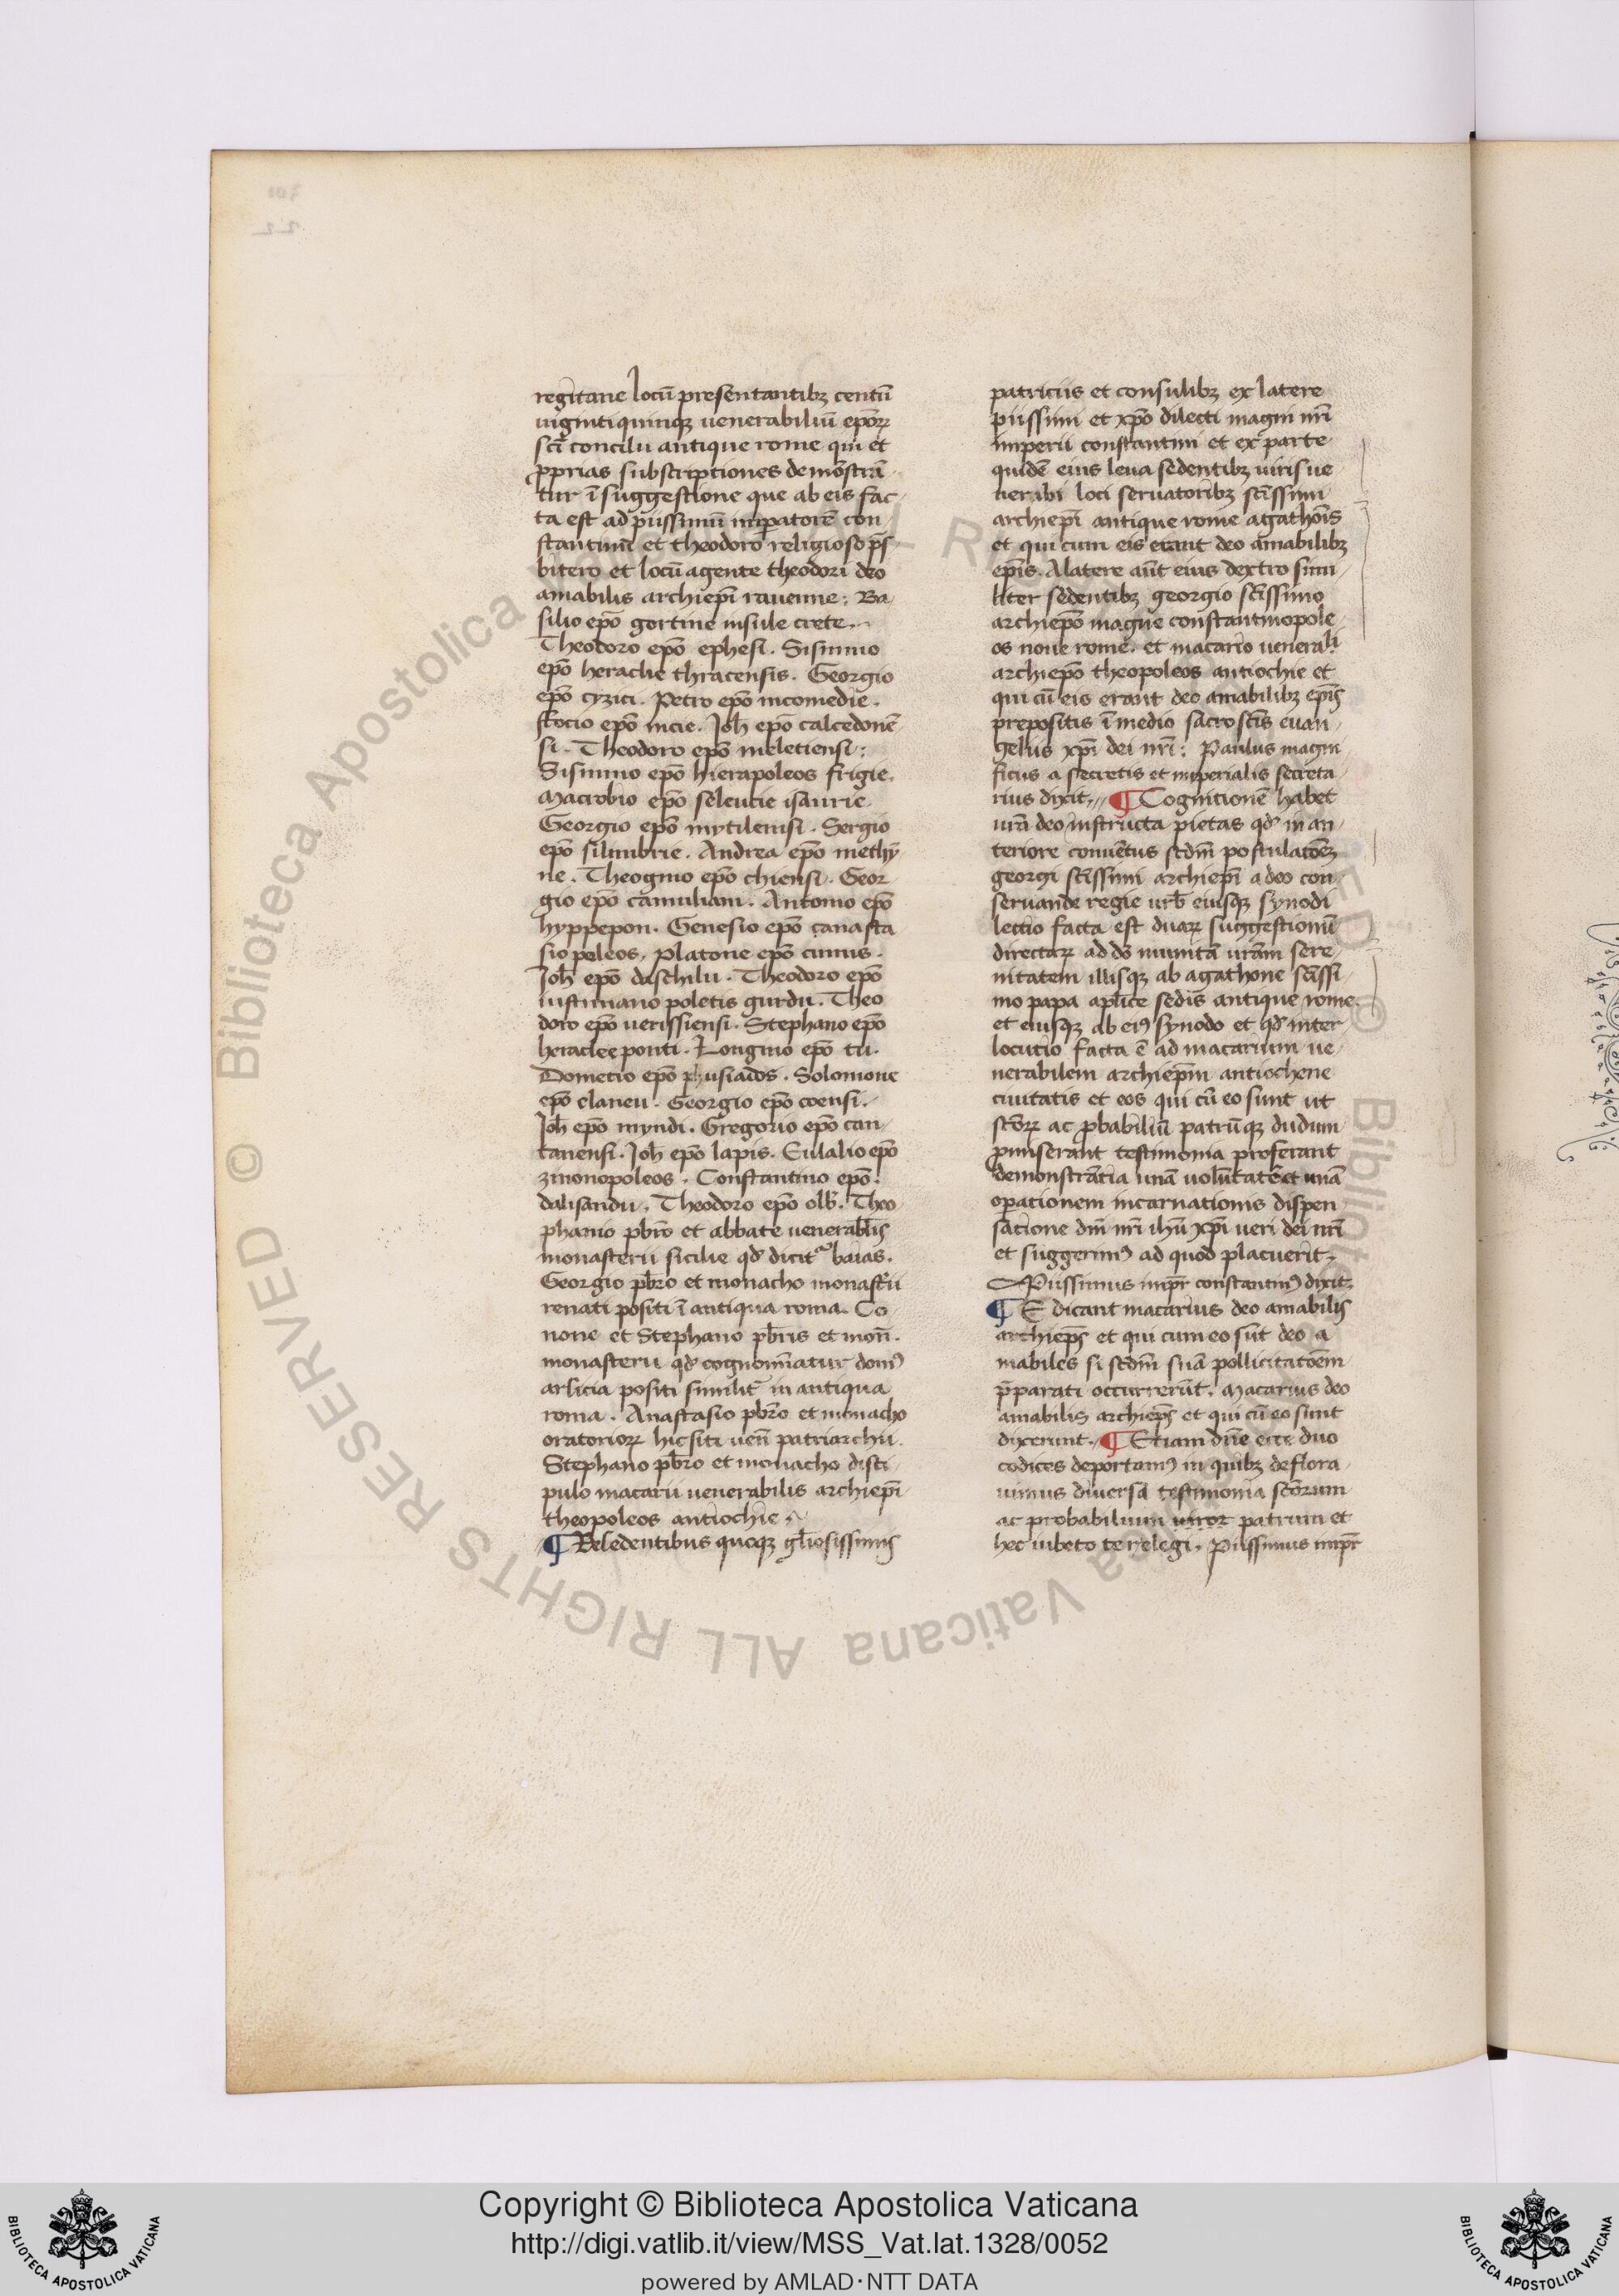 regitane locū presentantibꝫ centū
uigintiquinqꝫ uenerabiliū epōꝝ
scī concilii antique rome qui et
ꝓprias subscriptiones demōstrā
tur ī suggestione que ab eis fac
ta est ad piissimū imꝑatorē con
stantinū et theodoro religioso p̄s
bitero et locū agente theodori deo
amabilis archiepī rauenne : Ba
silio epō gortine insule crete.
Theodoro epō ephesi . Sisinnio
epō heraclie thracensis . Georgio
epō cyzici . Petro epō nicomedie .
ffocio epō nicie . Joh̄ epō calcedonē
si . Theodoro epō meletiensi :
Sisinnio epō hierapoleos frigie .
Macrobio epō seleucie isaurie .
Georgio epō mytilenisi . Sergio
epō silimbrie . Andrea epō methȳ
ne . Theognio epō chiensi . Geor
gio epō camuliani . Antonio epō
hyppepon . Genesio epō canasta
siopoleos . Platone epō cinnis .
Joh̄ epō daschilii . Theodoro epō
iustiniano poletis gurdu . Theo
doro epō uerissiensi . Stephano epō
heraclee ponti . Longino epō tii .
Dometio epō phusiados . Solomone
epō claneu . Georgio epō coensi .
Joh̄ epō myndi . Gregorio epō can
tanensi . Joh̄ epō lapis . Eulalio epō
zinonopoleos . Constantino epō
dalisandu . Theodoro epō olb̄ . Theo
phanio pbrō et abbate uenerabil̄
monasterii sicilie qd̄ dicit baias .
Georgio pbrō et monacho monast̄ii
renati positi ī antiqua roma . Co
none et Stephano pbr̄is et mon̄ .
monasterii qd̄ cognomīatur domꝰ
arsicia positi similit̄ in antiqua
roma . Anastasio pbrō et monacho
oratorioꝝ hic siti uen̄ patriarchii .
Stephano pbrō et monacho disci
pulo macarii uenerabilis archiepī
theopoleos antiochie .
¶ Reledentibus quoqꝫ gl̄iosissimis
patriciis et consulibꝫ ex latere
piissimi et xpō dilecti magni nr̄i
imperii constantini et ex parte
quidē eius leua sedentibꝫ uiris ue
nerabi loci seruatoribꝫ scīssimi
archiepī antique rome agathōis
et qui cum eis erant deo amabilibꝫ
epīs . A latere aūt eius dextro simi
liter sedentibꝫ georgio scīssimo
archiepō magne constantinopole
os noue rome . et macario uenerabli
archiepō theopoleos antiochie et
qui cū eis erant deo amabilibꝫ epīs
prepositis ī medio sacro scīs euan
geliis xpī dei nr̄i : Paulus magni
ficus a secretis et imperialis secreta
rius dixit . ¶ Cognitionē habet
urā deo instructa pietas qd̄ in an
teriore conuētus scdm̄ postulatōeꝫ
georgi scīssimi archiepī a deo con
seruande regie urb̄ eiusqꝫ synodi
lectio facta est duaꝝ suggestionū
directaꝝ ad dō munitā urām sere
nitatem illisqꝫ ab agathone scīssi
mo papa aplīce sedis antique rome
et eiusqꝫ ab eiꝰ synodo et qd̄ inter
locutio facta ē ad macarium ue
nerabilem archiepm̄ antiochene
ciuitatis et eos qui cū eo sunt ut
scōꝝ ac ꝓbabiliū patrūqꝫ dudum
ꝓmiserant testimonia proferant
demonstrātia unā uolūtatē et unā
oꝑationem incarnationis dispen
satione dn̄i nr̄i ih̄u xpī ueri dei nr̄i
et suggerimꝰ ad quod placuerit .
Piissimus impr̄ constantinꝰ dixit
¶ E dicant macarius deo amabilis
archiepꝭ et qui cum eo sūt deo a
mabiles si scdm̄ suā pollicitatōem
p̄parati occurrerūt . Macarius deo
amabilis archiepꝭ et qui cū eo sunt
dixerunt . ¶ Etiam dn̄e ecce duo
codices deportamꝰ in quibꝫ deflora
uimus diuersa testimonia scōrum
ac probabilium uiroꝝ patrum et
hec iubeto te relegi . Piissimus impr̄
Copyright © Biblioteca Apostolica Vaticana
http://digi.vatlib.it/view/MSS_Vat.lat.1328/0052
powered by AMLAD·NTT DATA
BIBLIOTECA APOSTOLICA VATICANA
BIBLIOTECA APOSTOLICA VATICANA
© Biblioteca Apostolica Vaticana ALL RIGHTS RESERVED